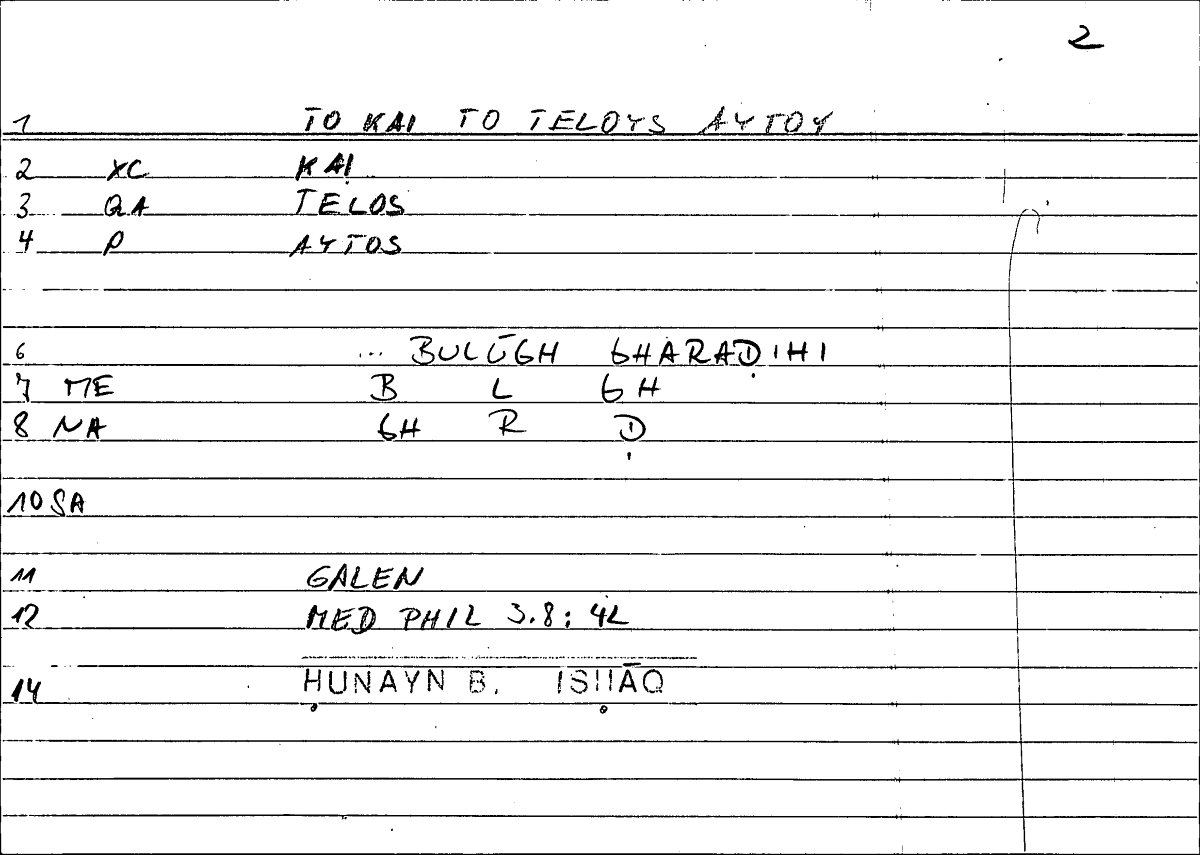 2
1 TO KAI TO TELOYS AYTOY
2 XC KAI
3 QA TELOS
4 P AYTOS
6 ... BULŪGH GHARAḌIHI
7 ME B L GH
8 NA GH R Ḍ
10 SA
11 GALEN
12 MED PHIL 3.8: 42
14 ḤUNAYN B. ISḤĀQ